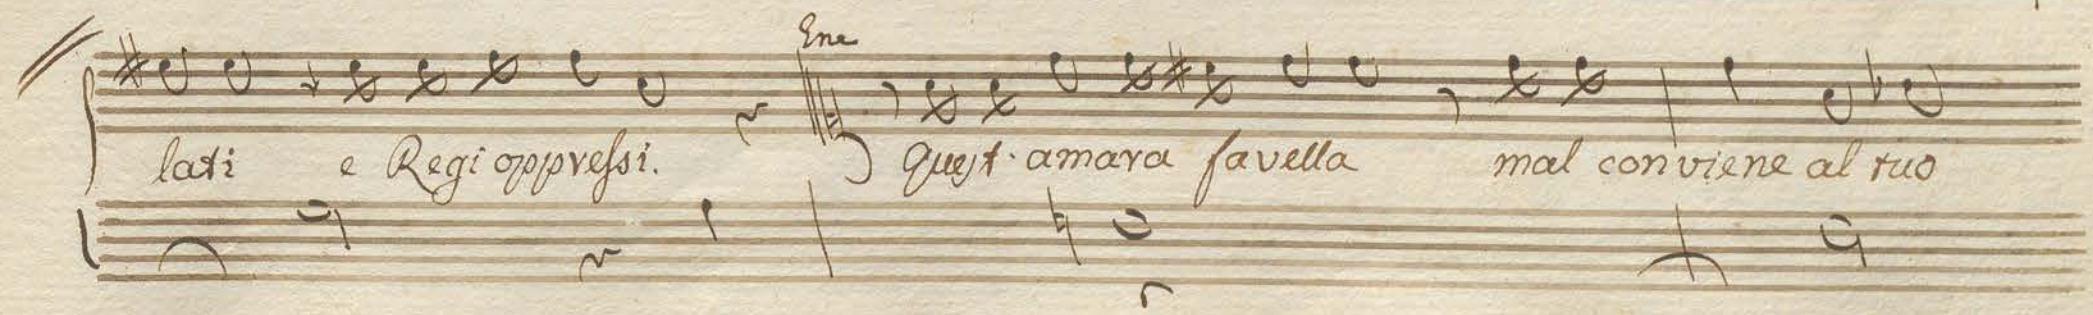 Ene
lati e Regi oppressi. Quest' amara favella mal conviene al tuo